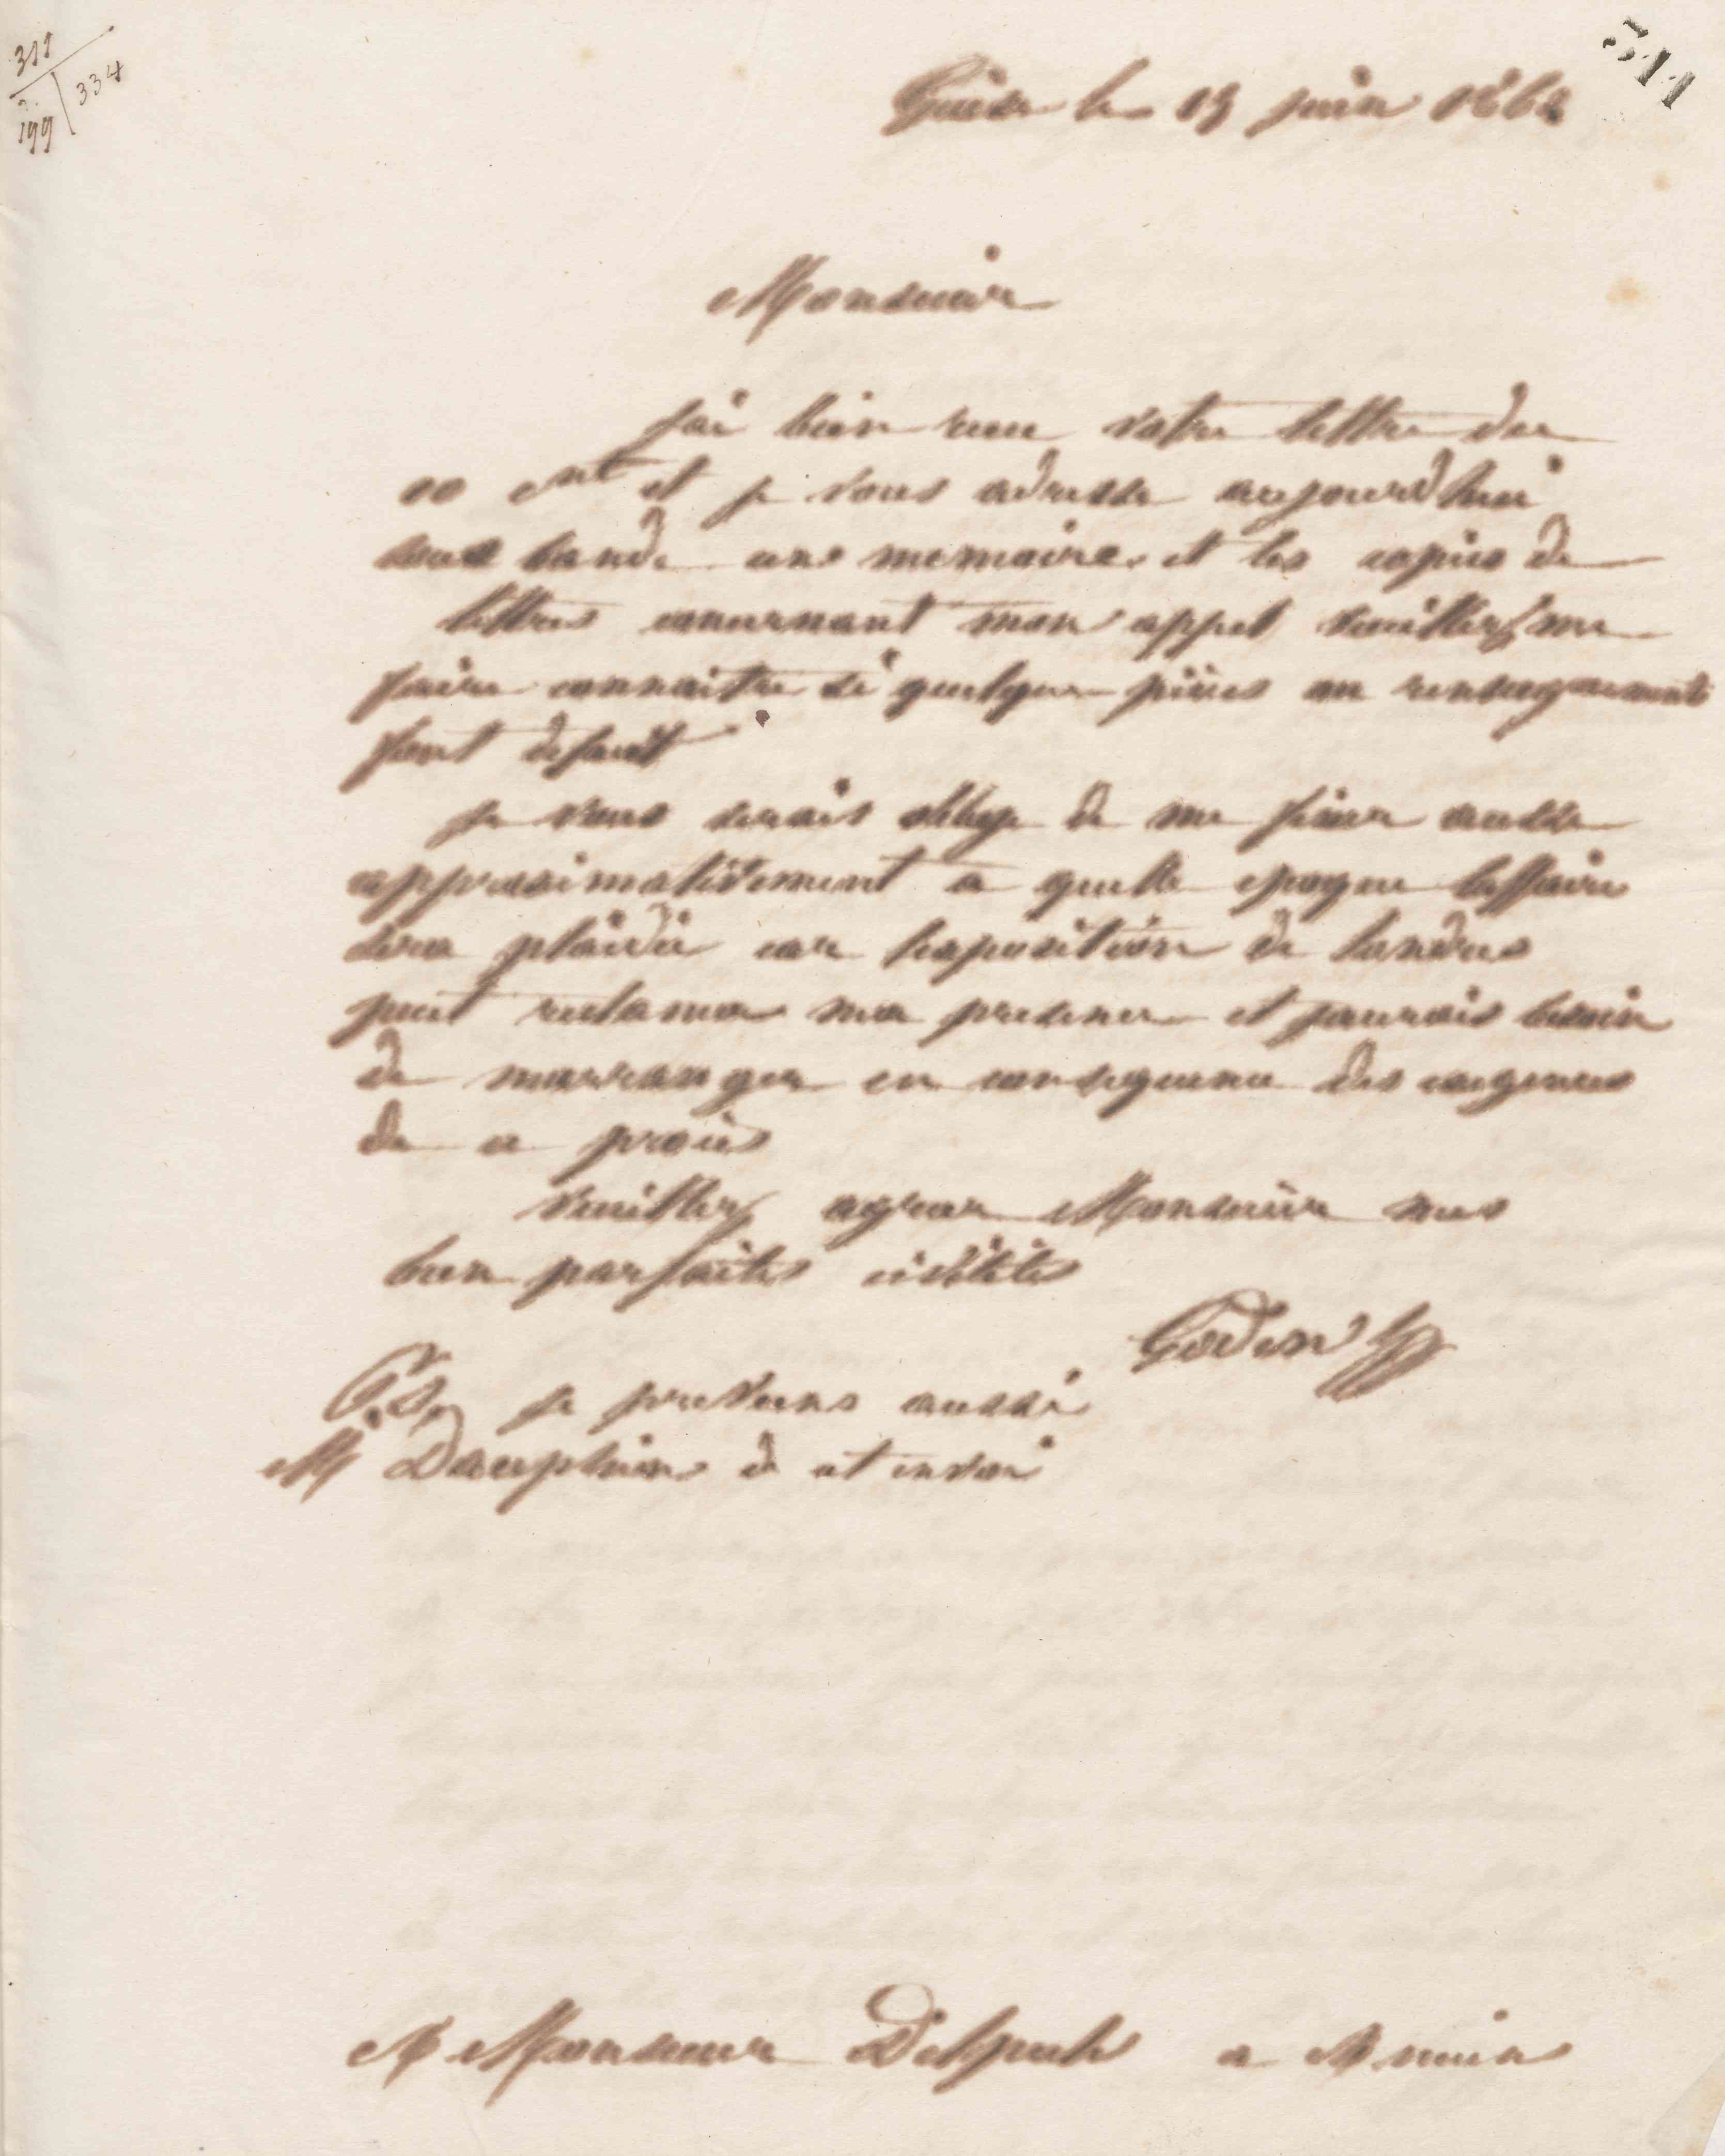 311
199 334
311
Guise le 13 juin 1862
Monsieur
J'ai bien recu votre lettre du
10 cnt et je vous adresse aujourd'hui
sous bande un memoire et les copies de
lettres concernant mon appel veuillez me
faire connaitre si quelques pièces ou renseignements
font defaut
je vous serais oblige de me fixer aussi
approximativement a quelle epoque laffaire
sera plaidée car lexposition de Londres
peut reclamer ma presence et jaurais besoin
de marranger en consequence des exigences
de ce procès
Veuillez agreer Monsieur mes
bien parfaites civilités
Godin
P.S. je previens aussi
Mr Dauphin de cet envoi
A Monsieur a Amiens